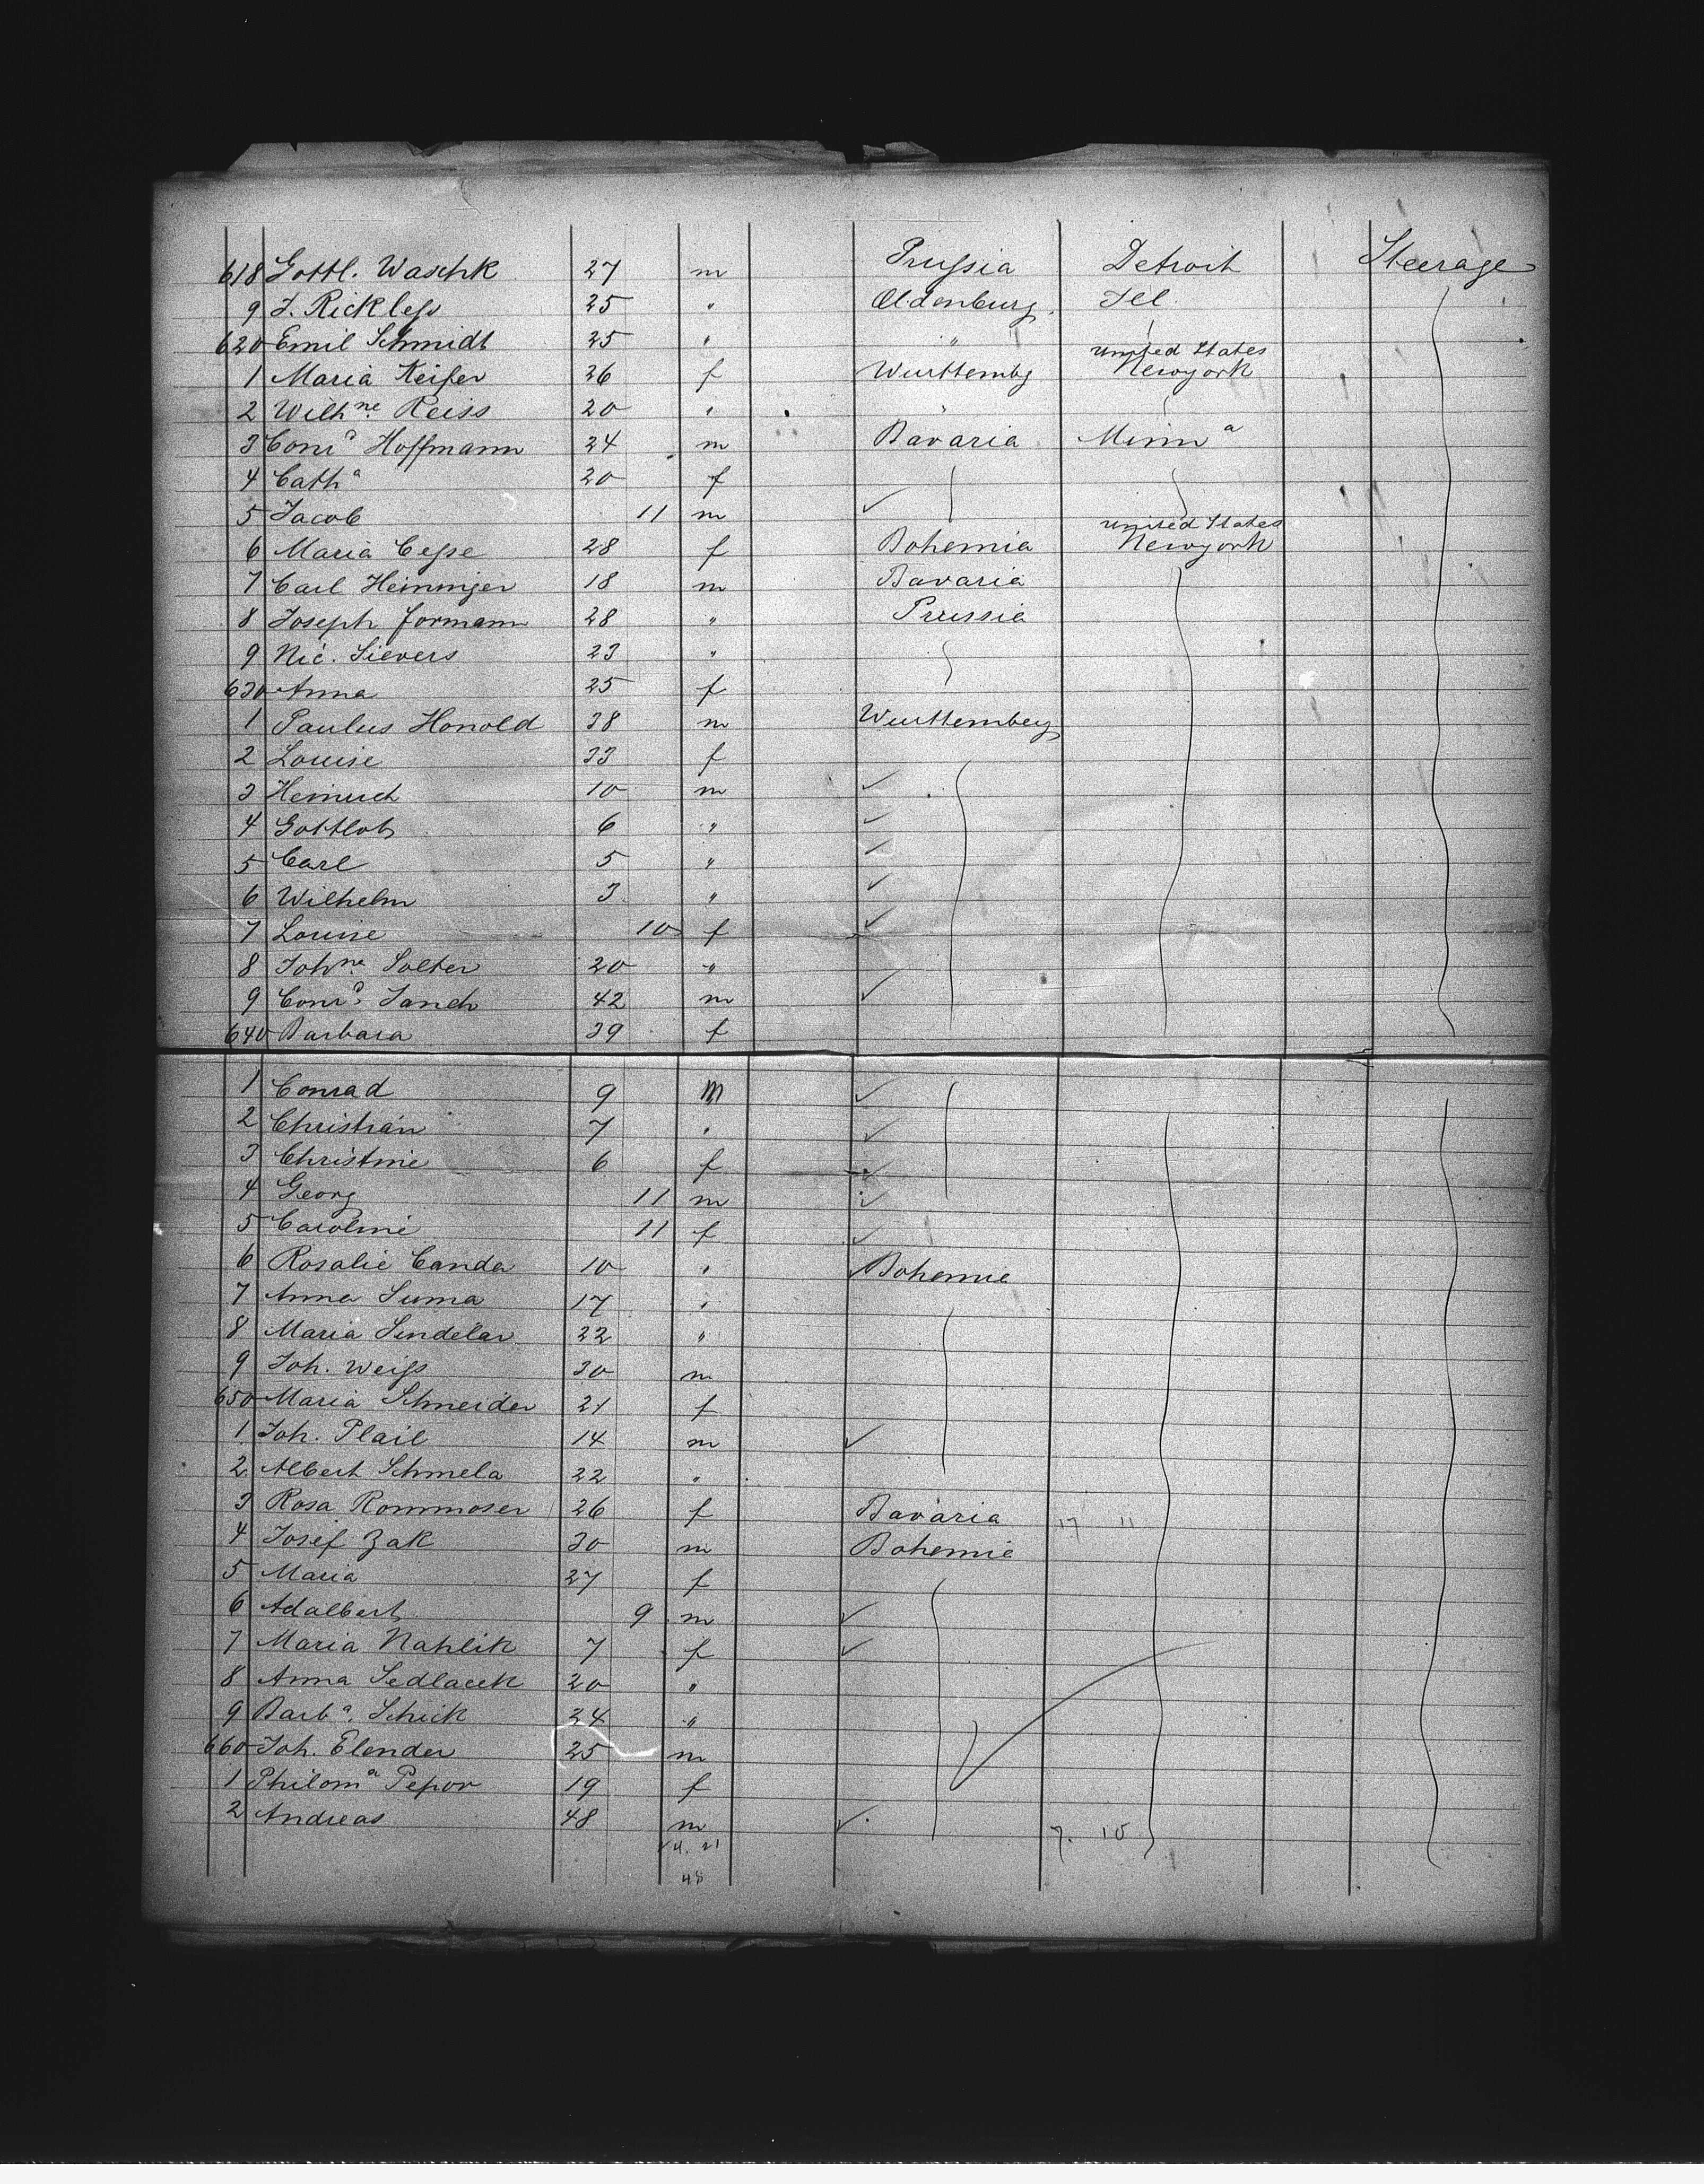 618 Gottl. Waschk 27 m Prussia Detroit Steerage
9 J. Rickless 25 " Oldenburg. Ill.
620 Emil Schmidt 25 " "
1 Maria Keiser 26 f Wurttembg United States Newyork
2 Wilhne Reiss 20 " "
3 Conrd Hoffmann 24 m Bavaria Minna
4 Catha 20 f
5 Jacob 11 m ✓
6 Maria Cesse 28 f Bohemia United States Newyork
7 Carl Heininger 18 m Bavaria
8 Joseph Formann 28 " Prussia
9 Nic. Sievers 23 "
630 Anna 25 f
1 Paulus Honold 38 m Wurttemberg
2 Louise 33 f
3 Heinrich 10 m ✓
4 Gottlob 6 " ✓
5 Carl 5 " ✓
6 Wilhelm 3 " ✓
7 Louise 10 f ✓
8 Johne Solter 20 "
9 Conrd 42 m ✓
640 Barbara 39 f
1 Conrad 9 m ✓
2 Christian 7 " ✓
3 Christine 6 f ✓
4 Georg 11 m ✓
5 Caroline 11 f ✓
6 Rosalie Canda 10 " ✓ Bohemie
7 Anna Suma 17 "
8 Maria Sindelar 22 "
9 Joh. Weiss 30 m
650 Maria Schneider 21 f
1 Joh. Plail 14 m ✓
2 Albert Schmela 22 "
3 Rosa Rommoser 26 f Bavaria 17 11
4 Josef Zak 30 m Bohemie
5 Maria 27 f
6 Adalbert 9 m ✓
7 Maria Nahlik 7 f ✓
8 Anna Sedlacek 20 "
9 Barba. Schick 24 "
660 Joh. Elender 25 m
1 Philoma Pepor 19 f
2 Andreas 48 m ✓ 7. 10
48